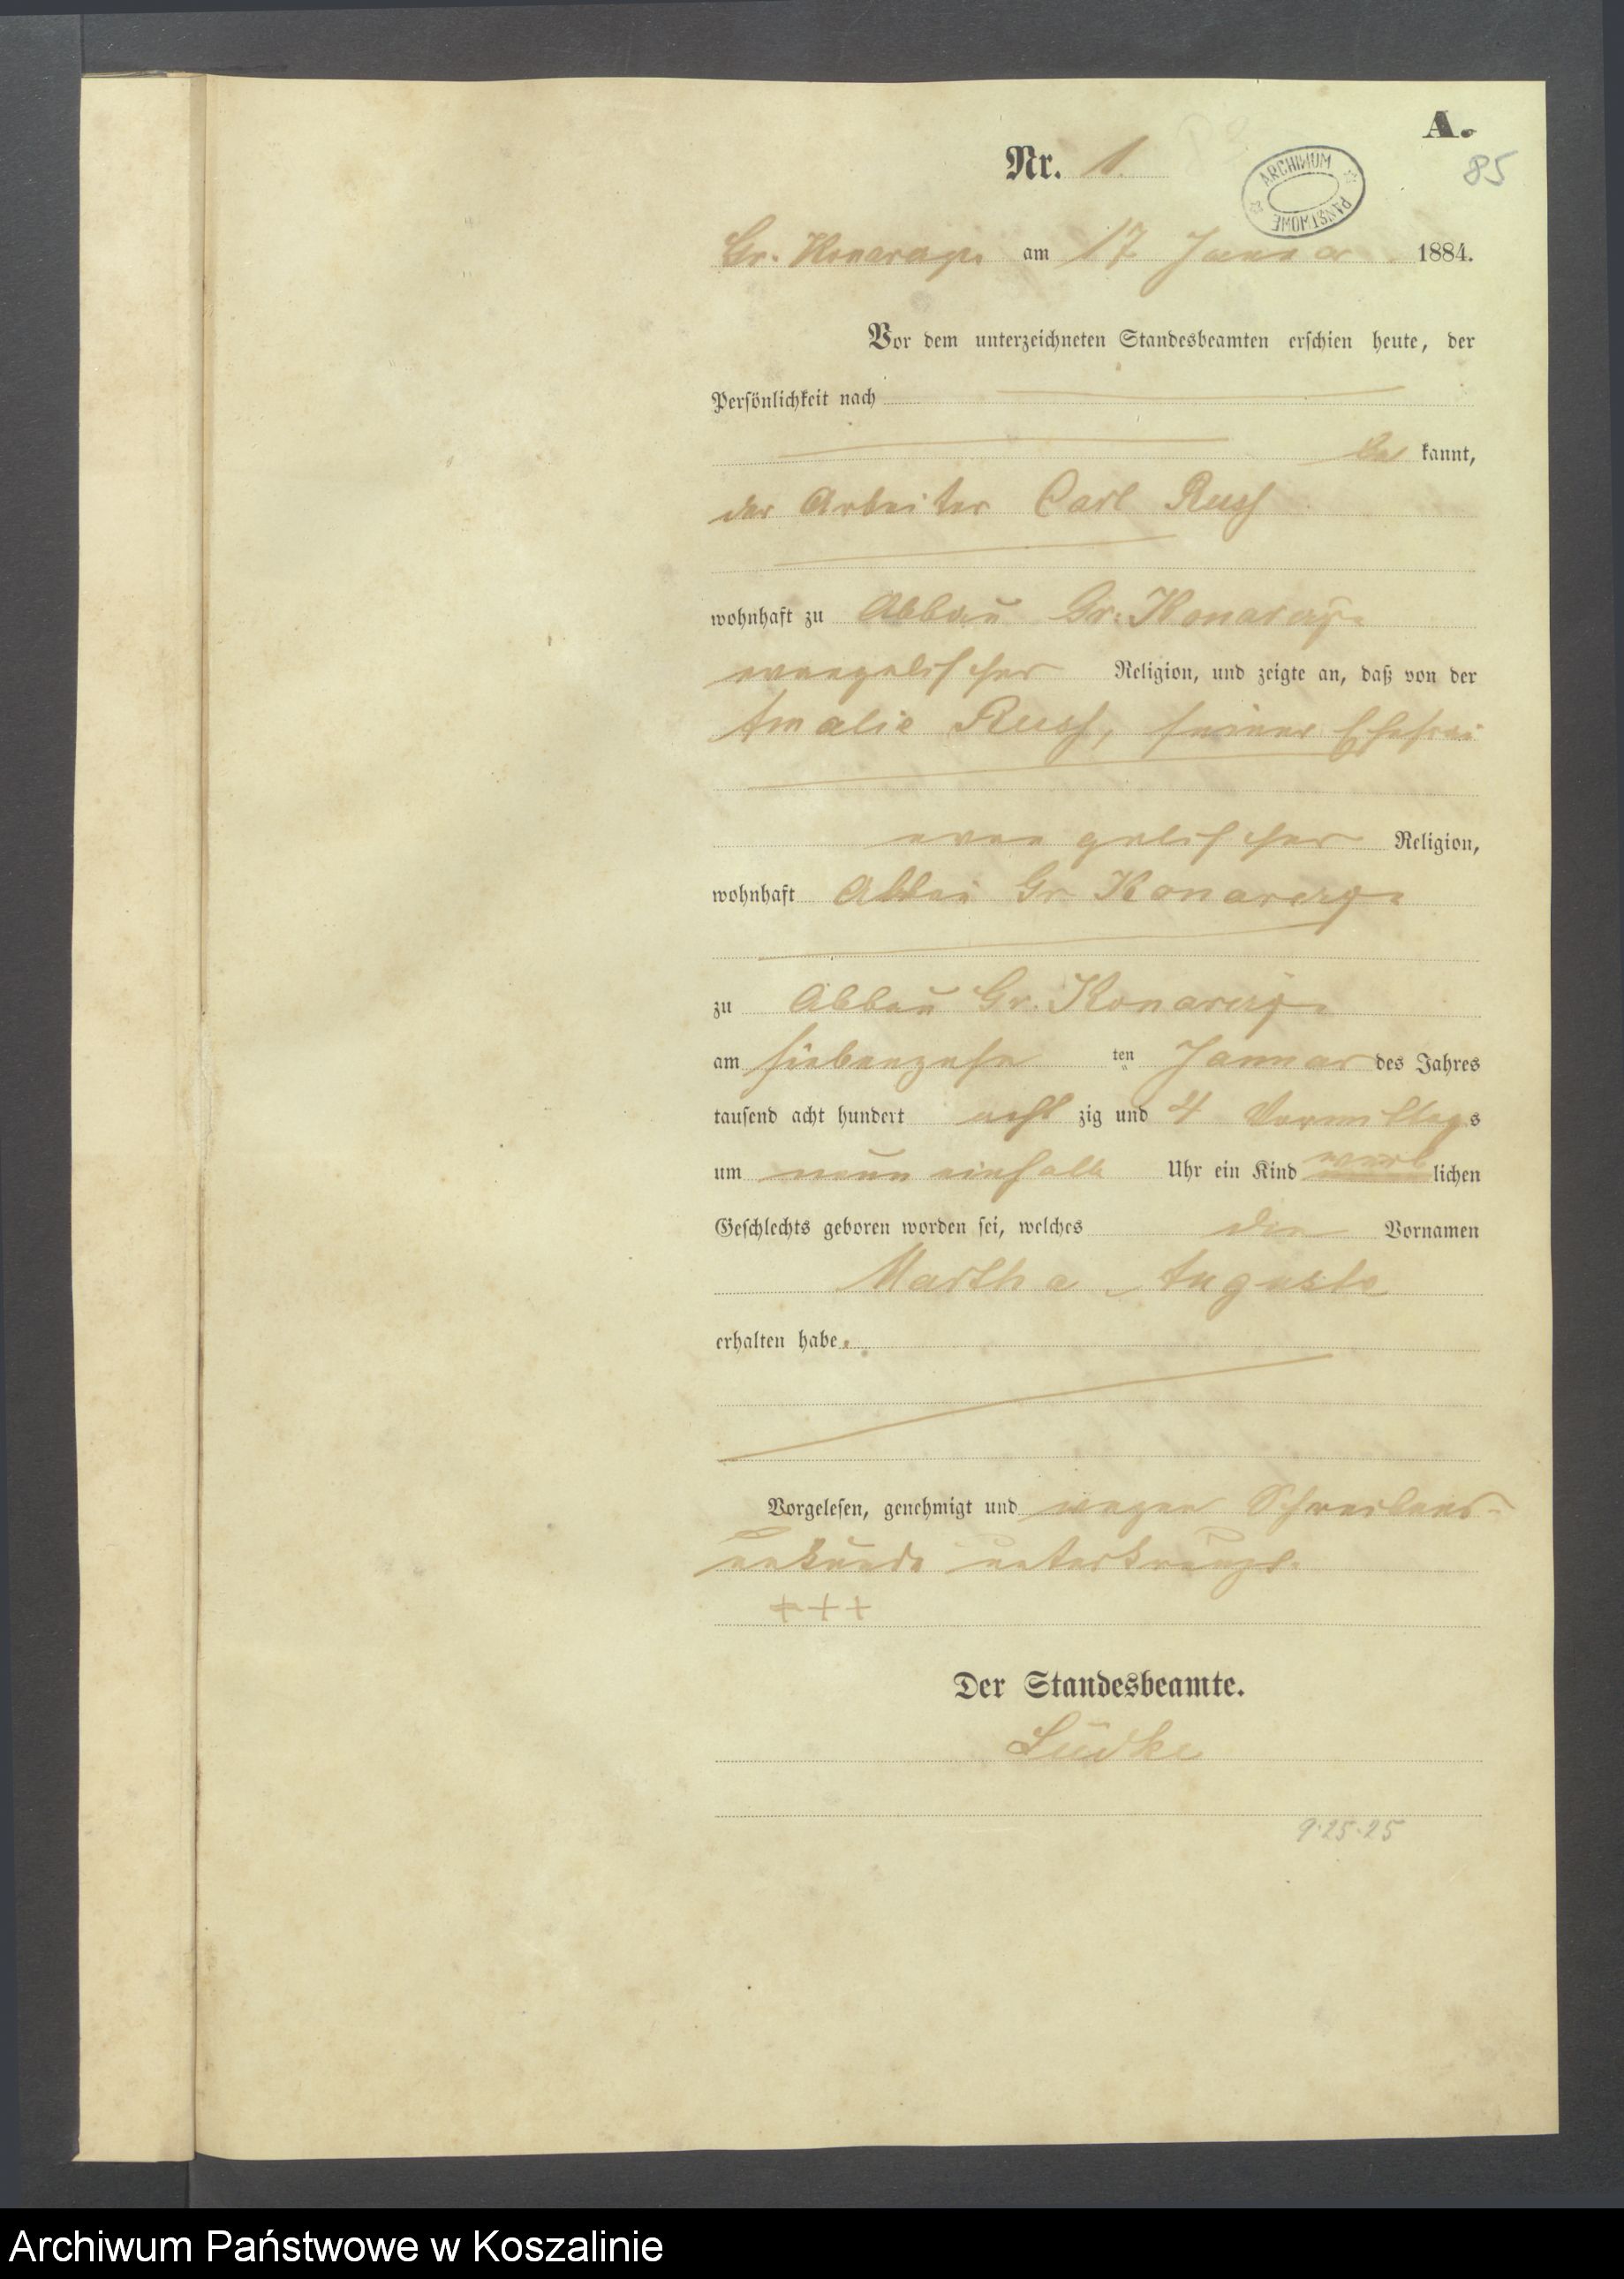 A.
Nr. 1.
85
ARCHIWUM PAŃSTWOWE
Gr. Konarczyn am 17 Januar 1884.
Vor dem unterzeichneten Standesbeamten erschien heute, der
Persönlichkeit nach
be kannt,
der Arbeiter Carl Russ
wohnhaft zu Abbau Gr. Konarczyn
evangelischer Religion, und zeigte an, daß von der
Amalie Russ, seiner Ehefrau
evangelischer Religion,
wohnhaft Abbau Gr. Konarczyn
zu Abbau Gr. Konarczyn
am siebenzehn ten Januar des Jahres
tausend acht hundert acht zig und 4 Vormittags
um neun einhalb Uhr ein Kind weiblichen
Geschlechts geboren worden sei, welches die Vornamen
Martha Auguste
erhalten habe.
Vorgelesen, genehmigt und wegen Schreibens-
unkunde unterkreuzt.
+++
Der Standesbeamte.
Lüdke
9.25.25
Archiwum Państwowe w Koszalinie